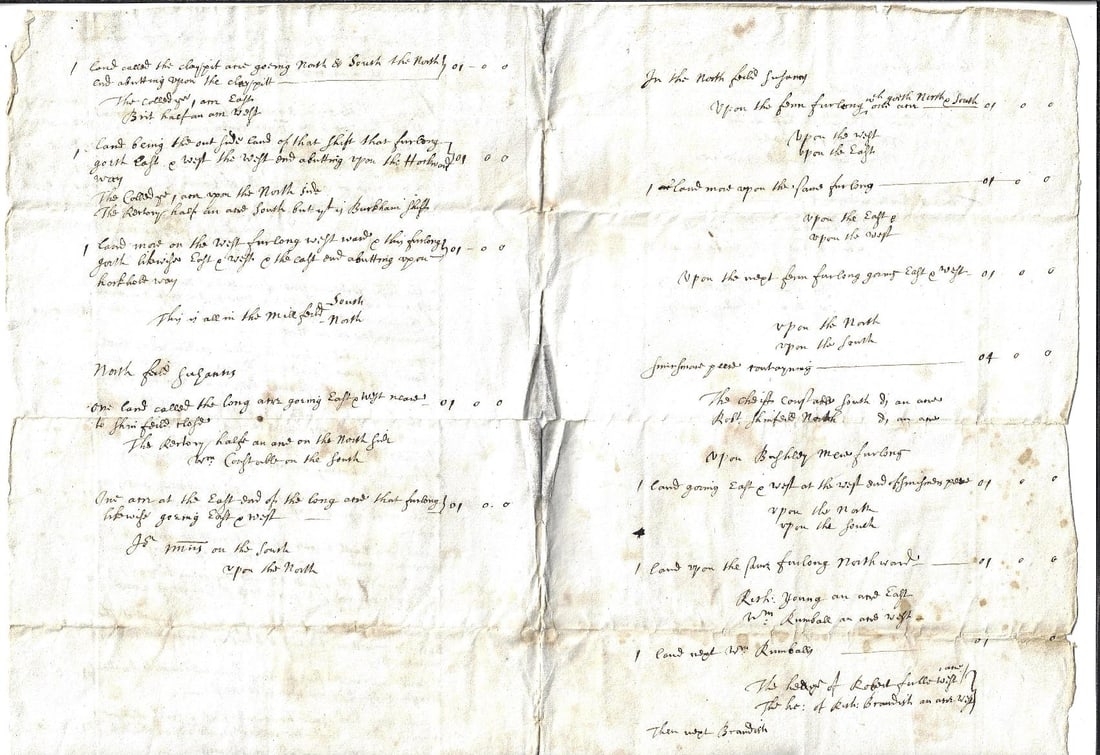 1 land called the claypit acre goeing North & South the North } 01 - 0 0
end abutting upon the claypitt
The Colledge 1 acre East
Brit half an acre West
1 land being the out side land of that shift that furlong
goeth East & west the west end abutting upon the } 01 0 0
way
The Colledge 1 acre upon the North side
The Rectory half an acre South but yt is Burkham shift
1 land more on the West furlong west ward & this furlong } 01 - 0 0
goeth likewise East & west & the east end abutting upon
way
This is all in the Mill feild South
North
North feild
One land called the long acre goeing East & West neare 01 0 0
to feild close
The Rectory halfe an acre on the North side
Wm Constable on the South
One acre at the East end of the long acre that furlong } 01 0 0
likewise goeing East & west
on the South
upon the North
In the North feild
Upon the fenn furlong wch goeth North & South one acre 01 0 0
Upon the west
Upon the East
1 land more upon the same furlong 01 0 0
Upon the East &
Upon the West
Upon the next fenn furlong going East & West 01 0 0
Upon the North
Upon the South
peece contayning 04 0 0
The South di an acre
Robt. North di an acre
Upon Mew furlong
1 land goeing East & West at the West end of peece 01 0 0
upon the North
upon the South
1 land upon the same furlong North ward 01 0 0
Rich: Young an acre East
Wm Rumball an acre West
1 land next Wm Rumballs 01 0
The of Robert Fuller West acre
The he: of Rich: Brandish an acre West
Then next Brandish